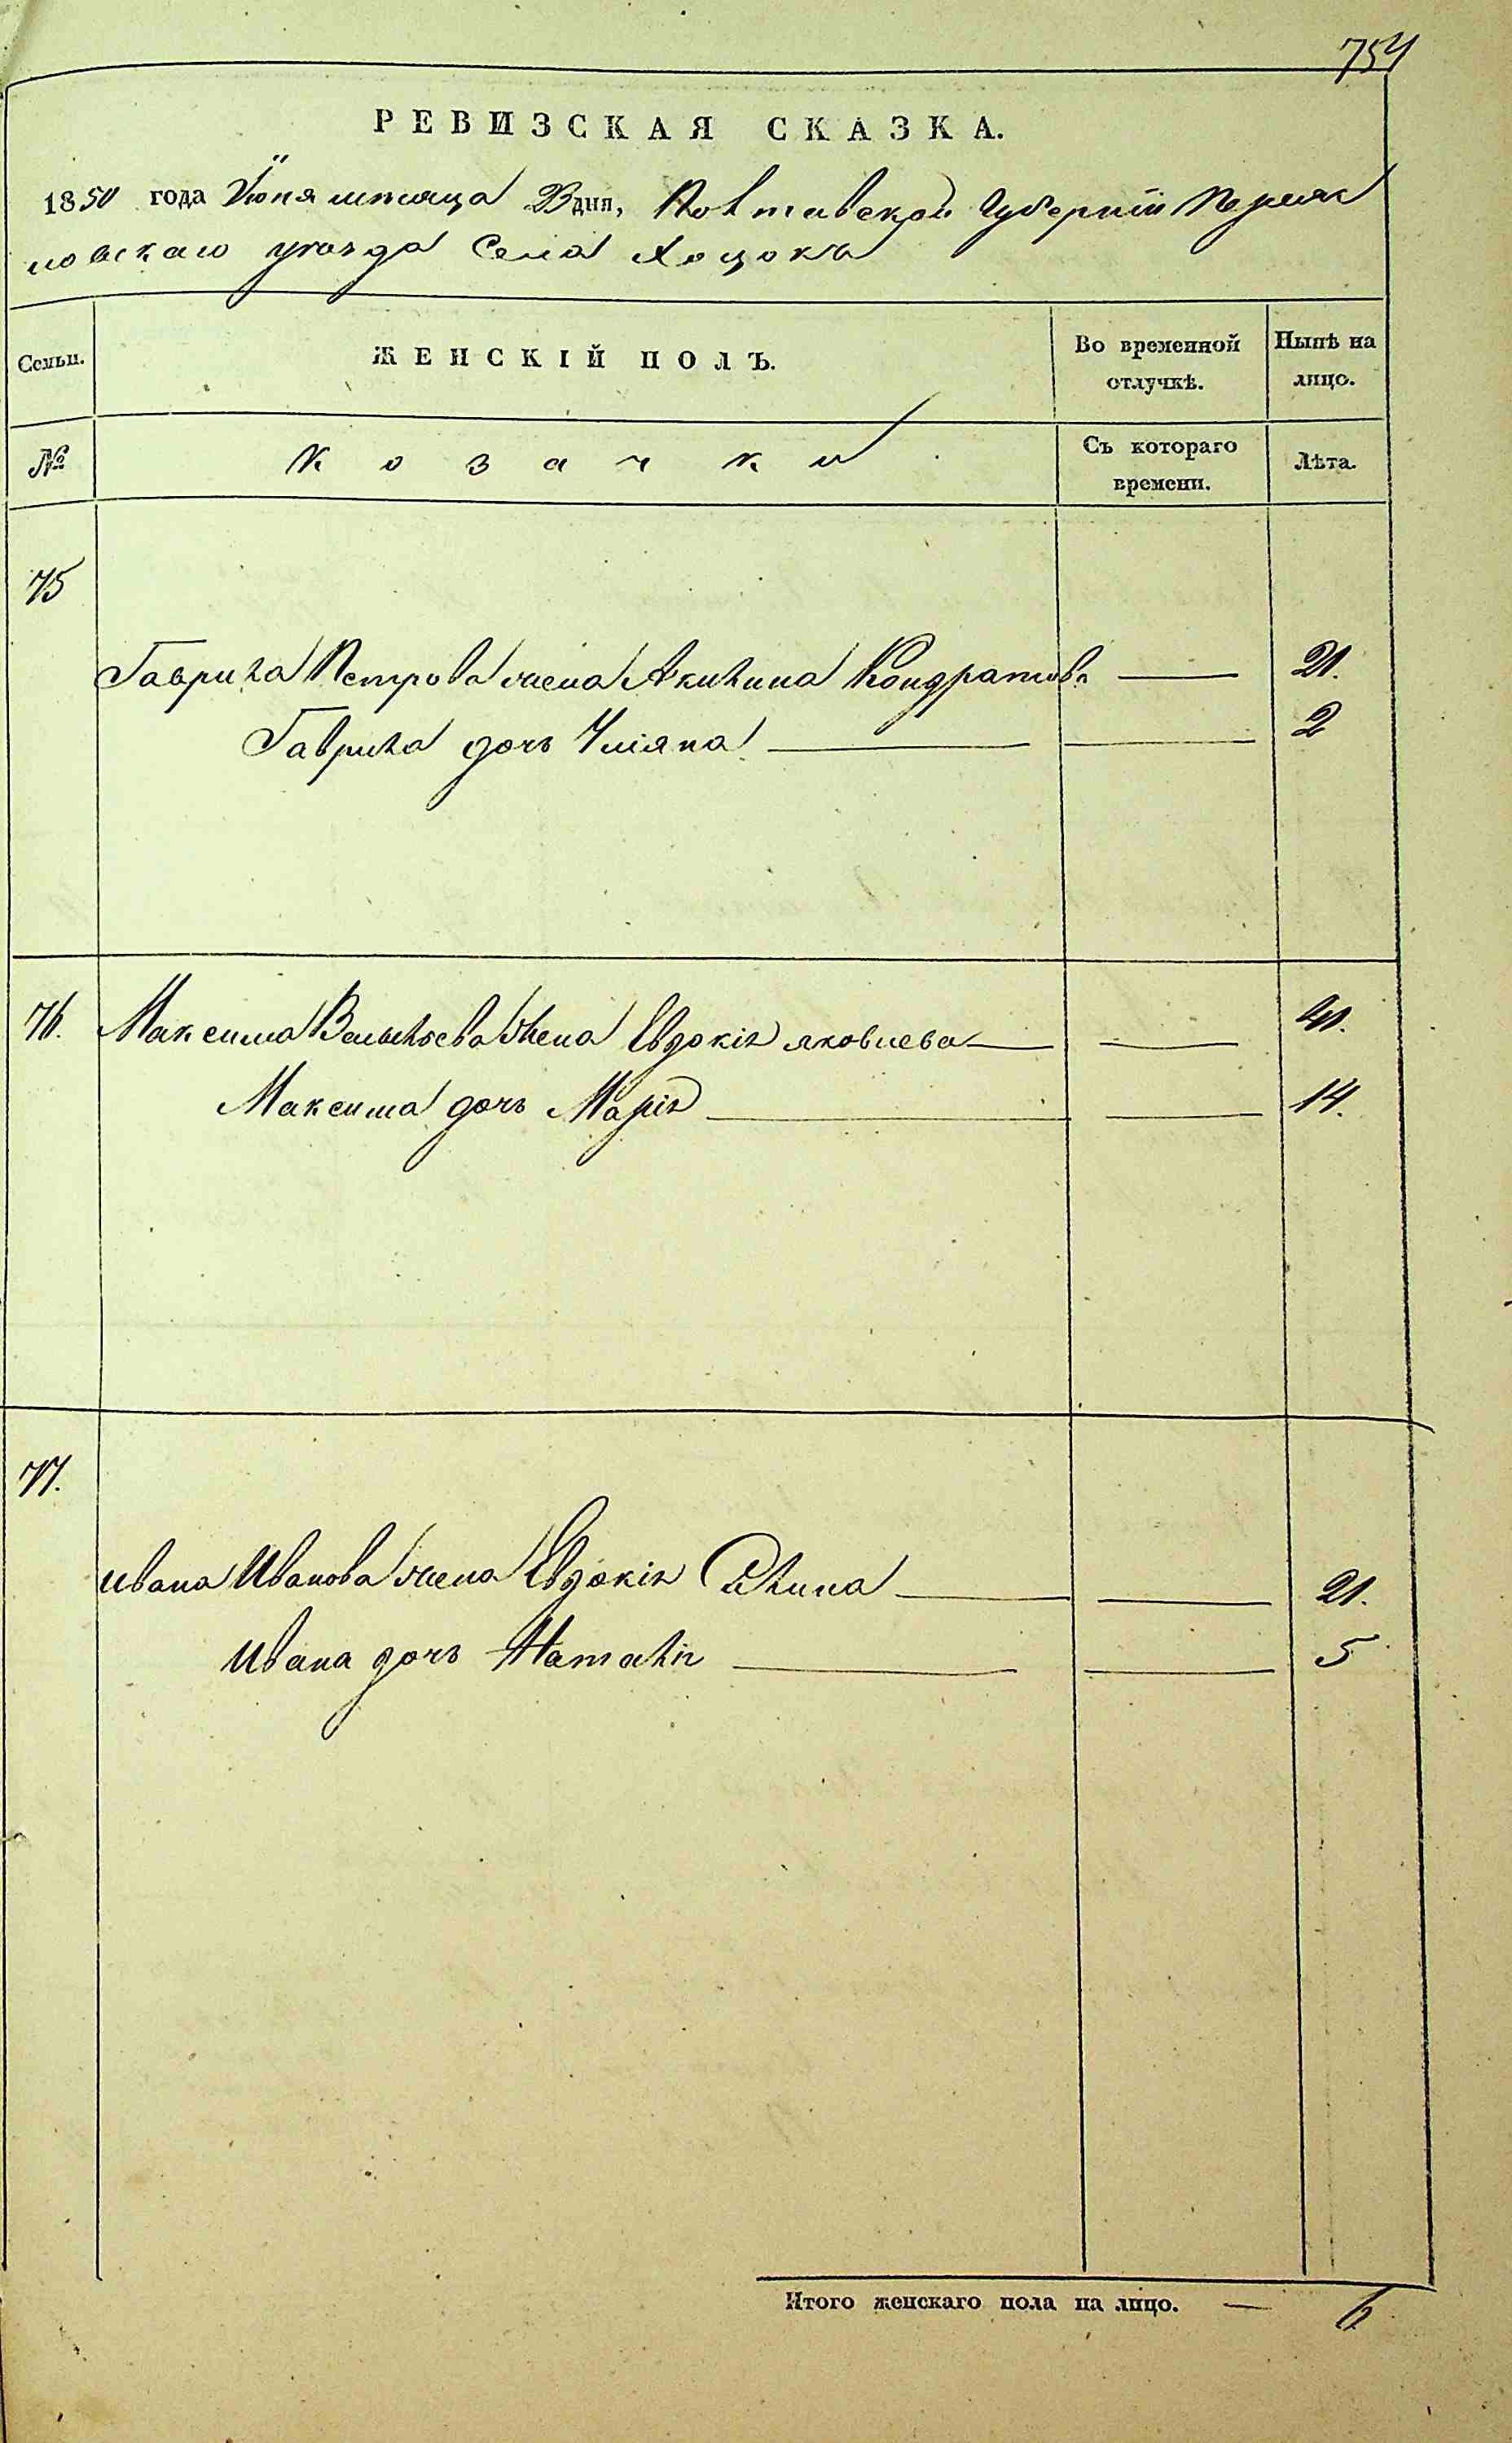 754
РЕВИЗСКАЯ СКАЗКА.
1850 года Июня мѣсяца 23 дня, Полтавской Губерніи Переяс
ловскаго уѣзда Села Хоцокъ
Семьи. ЖЕНСКІЙ ПОЛЪ. Во временной отлучкѣ. Нынѣ на лицо.
№ Козачки Съ котораго времени. Лѣта.
75
Гаврила Петрова жена Акилина Кондратова — 21.
Гаврила дочь Уліяна — — 2
76. Максима жена Евдокія Яковлева — — 41.
Максима дочь Марія — — 14.
77.
Ивана Иванова жена Евдокія — — 21.
Ивана дочь Наталія — — 5
Итого женскаго пола на лицо. — 6